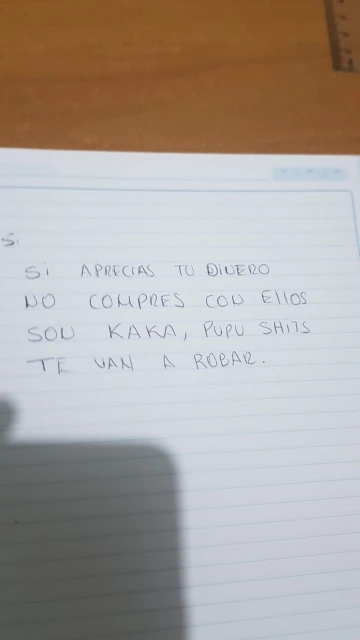 Si
Si APRECIAS TU DINERO
NO COMPRES CON EllOS
SON KAKA, PUPU SHITS
TE VAN A ROBAR.